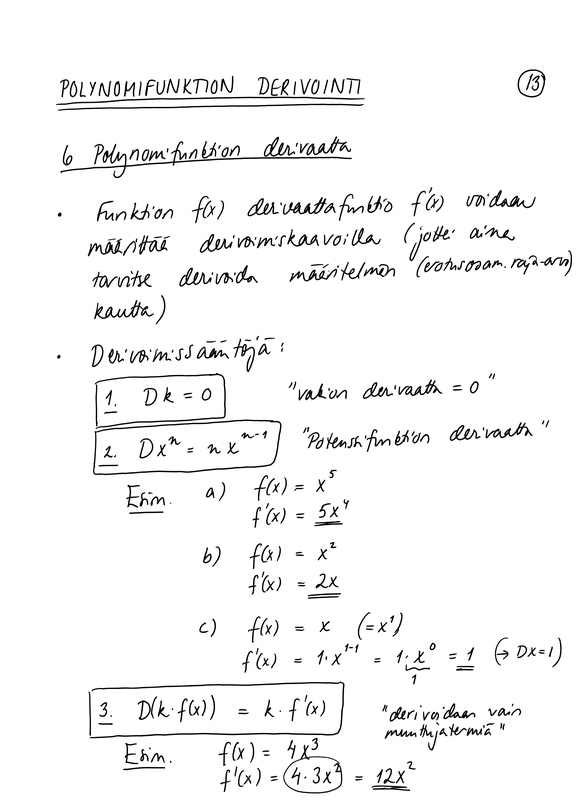 POLYNOMIFUNKTION DERIVOINTI
13
6 Polynomifunktion derivaatta
• Funktion f(x) derivaattafunktio f'(x) voidaan
määrittää derivoimiskaavoilla (jottei aina
tarvitse derivoida määritelmän (erotusosam. raja-arvo)
kautta)
• Derivoimissääntöjä:
1. Dk = 0 "vakion derivaatta = 0"
2. Dxⁿ = n xⁿ⁻¹ "Potenssifunktion derivaatta"
Esim. a) f(x) = x⁵
f'(x) = 5x⁴
b) f(x) = x²
f'(x) = 2x
c) f(x) = x (= x¹)
f'(x) = 1·x¹⁻¹ = 1·x⁰ = 1 (→ Dx=1)
1
3. D(k·f(x)) = k·f'(x) "derivoidaan vain
muuttujatermiä"
Esim. f(x) = 4x³
f'(x) = 4·3x² = 12x²